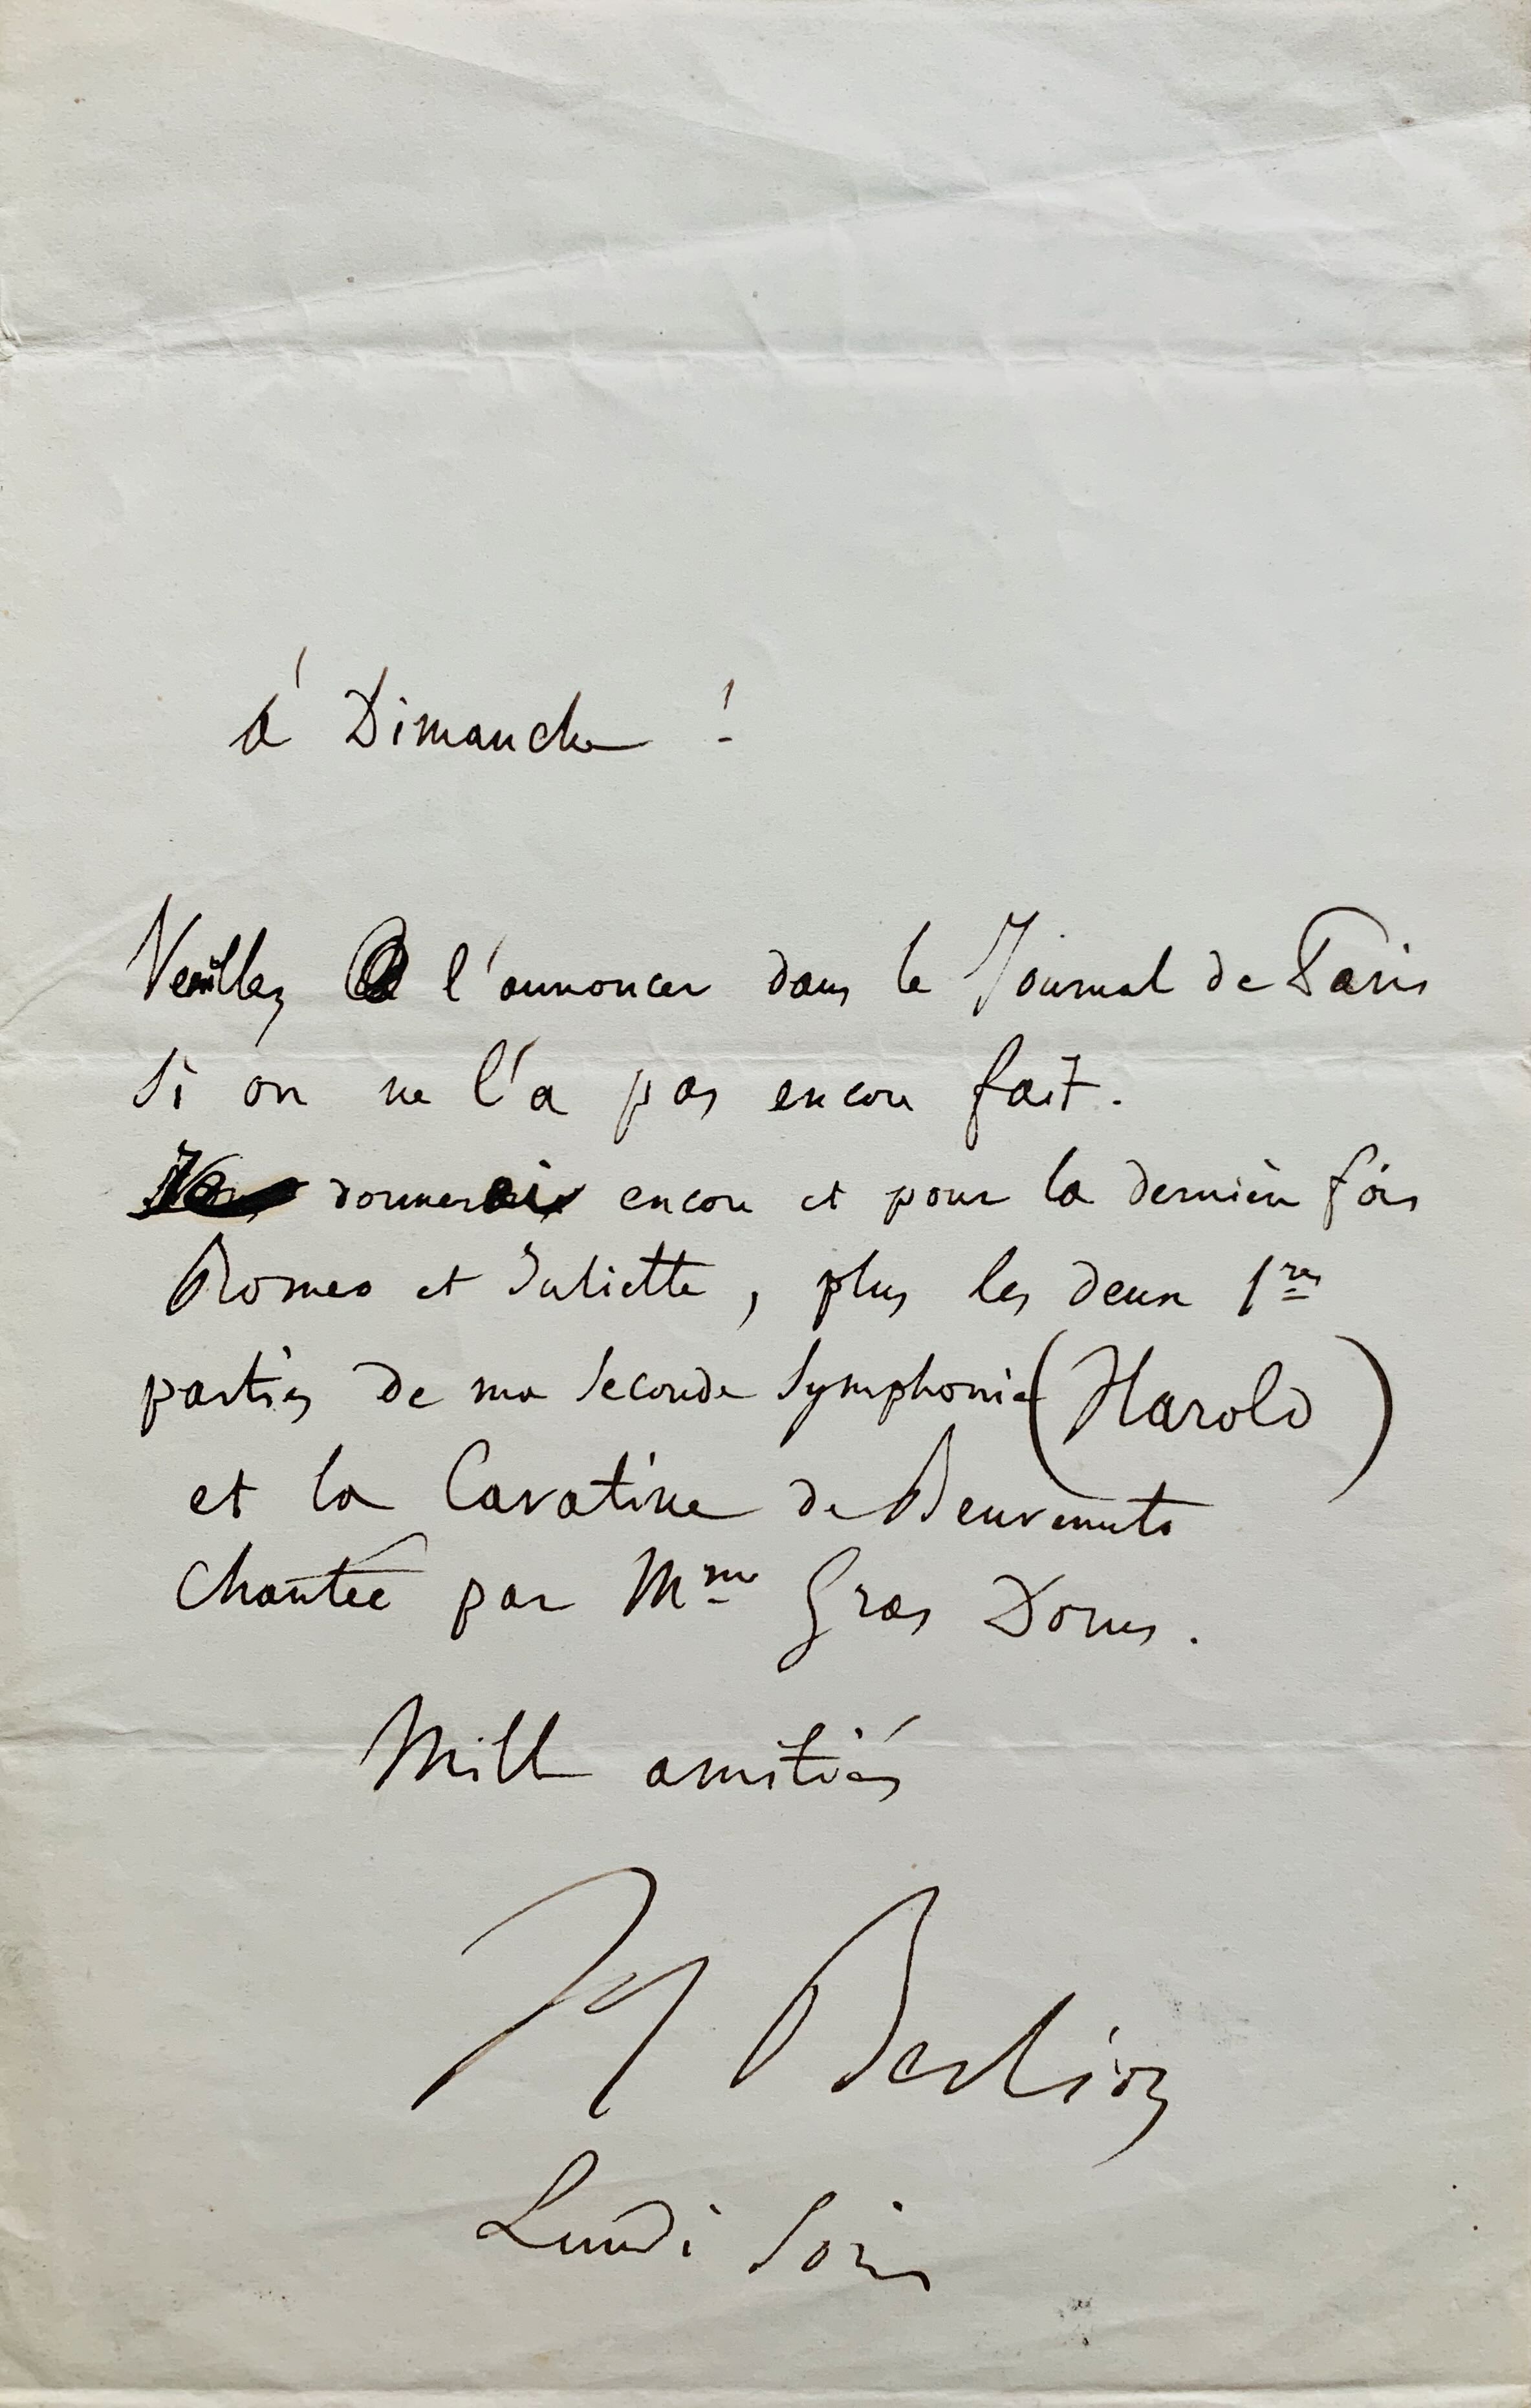 à Dimanche !
Veuillez l'annoncer dans le Journal de Paris
si on ne l'a pas encore fait.
Je donnerai encore et pour la dernière fois
Romeo et Juliette, plus les deux 1res
parties de ma seconde symphonie (Harold)
et la Cavatine de Benvenuto
chantée par Mme Gras Dorus.
Mille amitiés
H Berlioz
Lundi soir